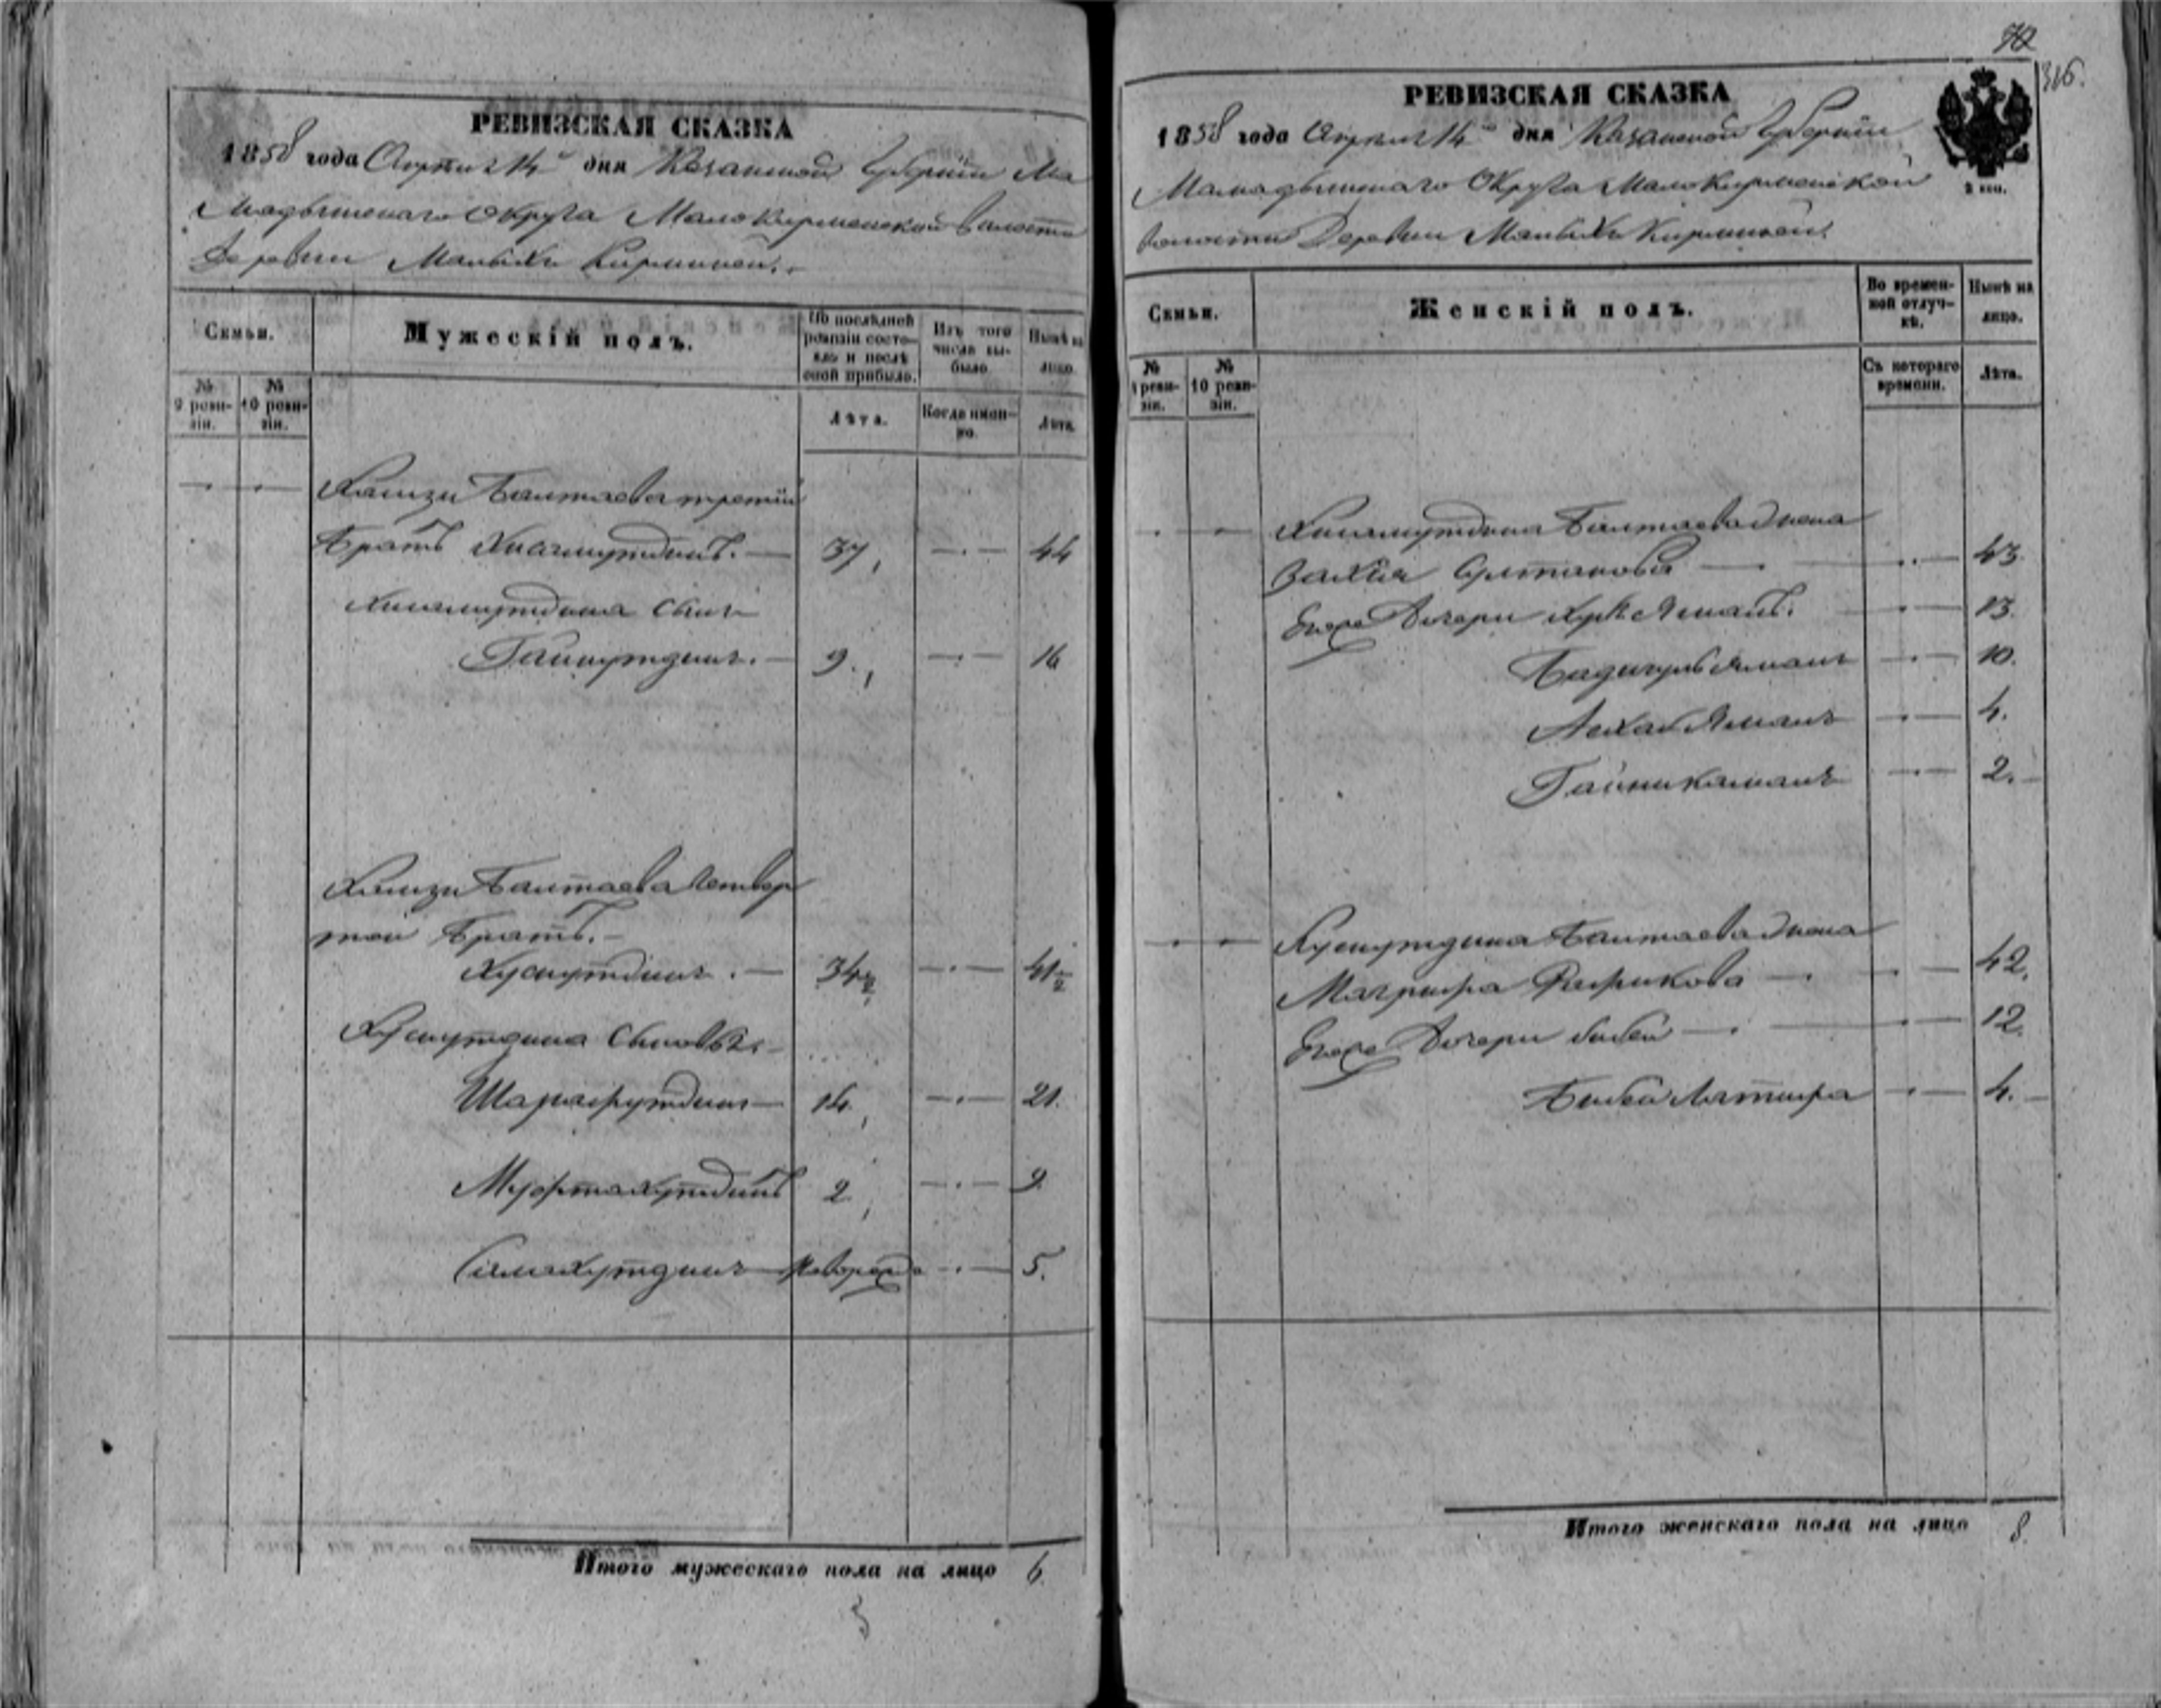 РЕВИЗСКАЯ СКАЗКА
1858 года Апреля 14 дня Казанской Губернии Ма
мадышскаго Округа Мало Кирменской Волости
Деревни Малыхъ Кирменей.
Семьи.
Мужескій полъ.
По послѣдней ревизіи состояло и послѣ оной прибыло.
Изъ того числа выбыло.
Нынѣ на лицо.
№ 9 ревизіи.
№ 10 ревизіи.
Лѣта.
Когда именно.
Лѣта.
Хамзи Бантаева третій
братъ Хисамутдинъ. 37 44
Хисамутдина сынъ
Гайнутдинъ. 9. 16
Хамзи Бантаева четвер
той братъ.
Хуснутдинъ. 34½ 41½
Хуснутдина сыновья
Шарафутдинъ 14. 21.
Муфтахутдинъ 2 9
Салахутдинъ новорож 5.
Итого мужескаго пола на лицо 6.
70
316.
РЕВИЗСКАЯ СКАЗКА
1858 года Апреля 14 дня Казанской Губерніи
Мамадышскаго Округа Мало Кирменской
волости Деревни Малыхъ Кирменей.
Семьи.
Женскій полъ.
Во временной отлучкѣ.
Нынѣ на лицо.
№ 9 ревизіи.
№ 10 ревизіи.
Съ котораго времени.
Лѣта.
Хисамутдина Бантаева жена
Закія Султанова 43.
Ихъ дочери 13.
10.
4.
Гайникамалъ 2.
Хуснутдина Бантаева жена
Магруфа Рафикова 42.
Ихъ дочери Биби 12.
Биби Лятифа 4.
Итого женскаго пола на лицо 8.